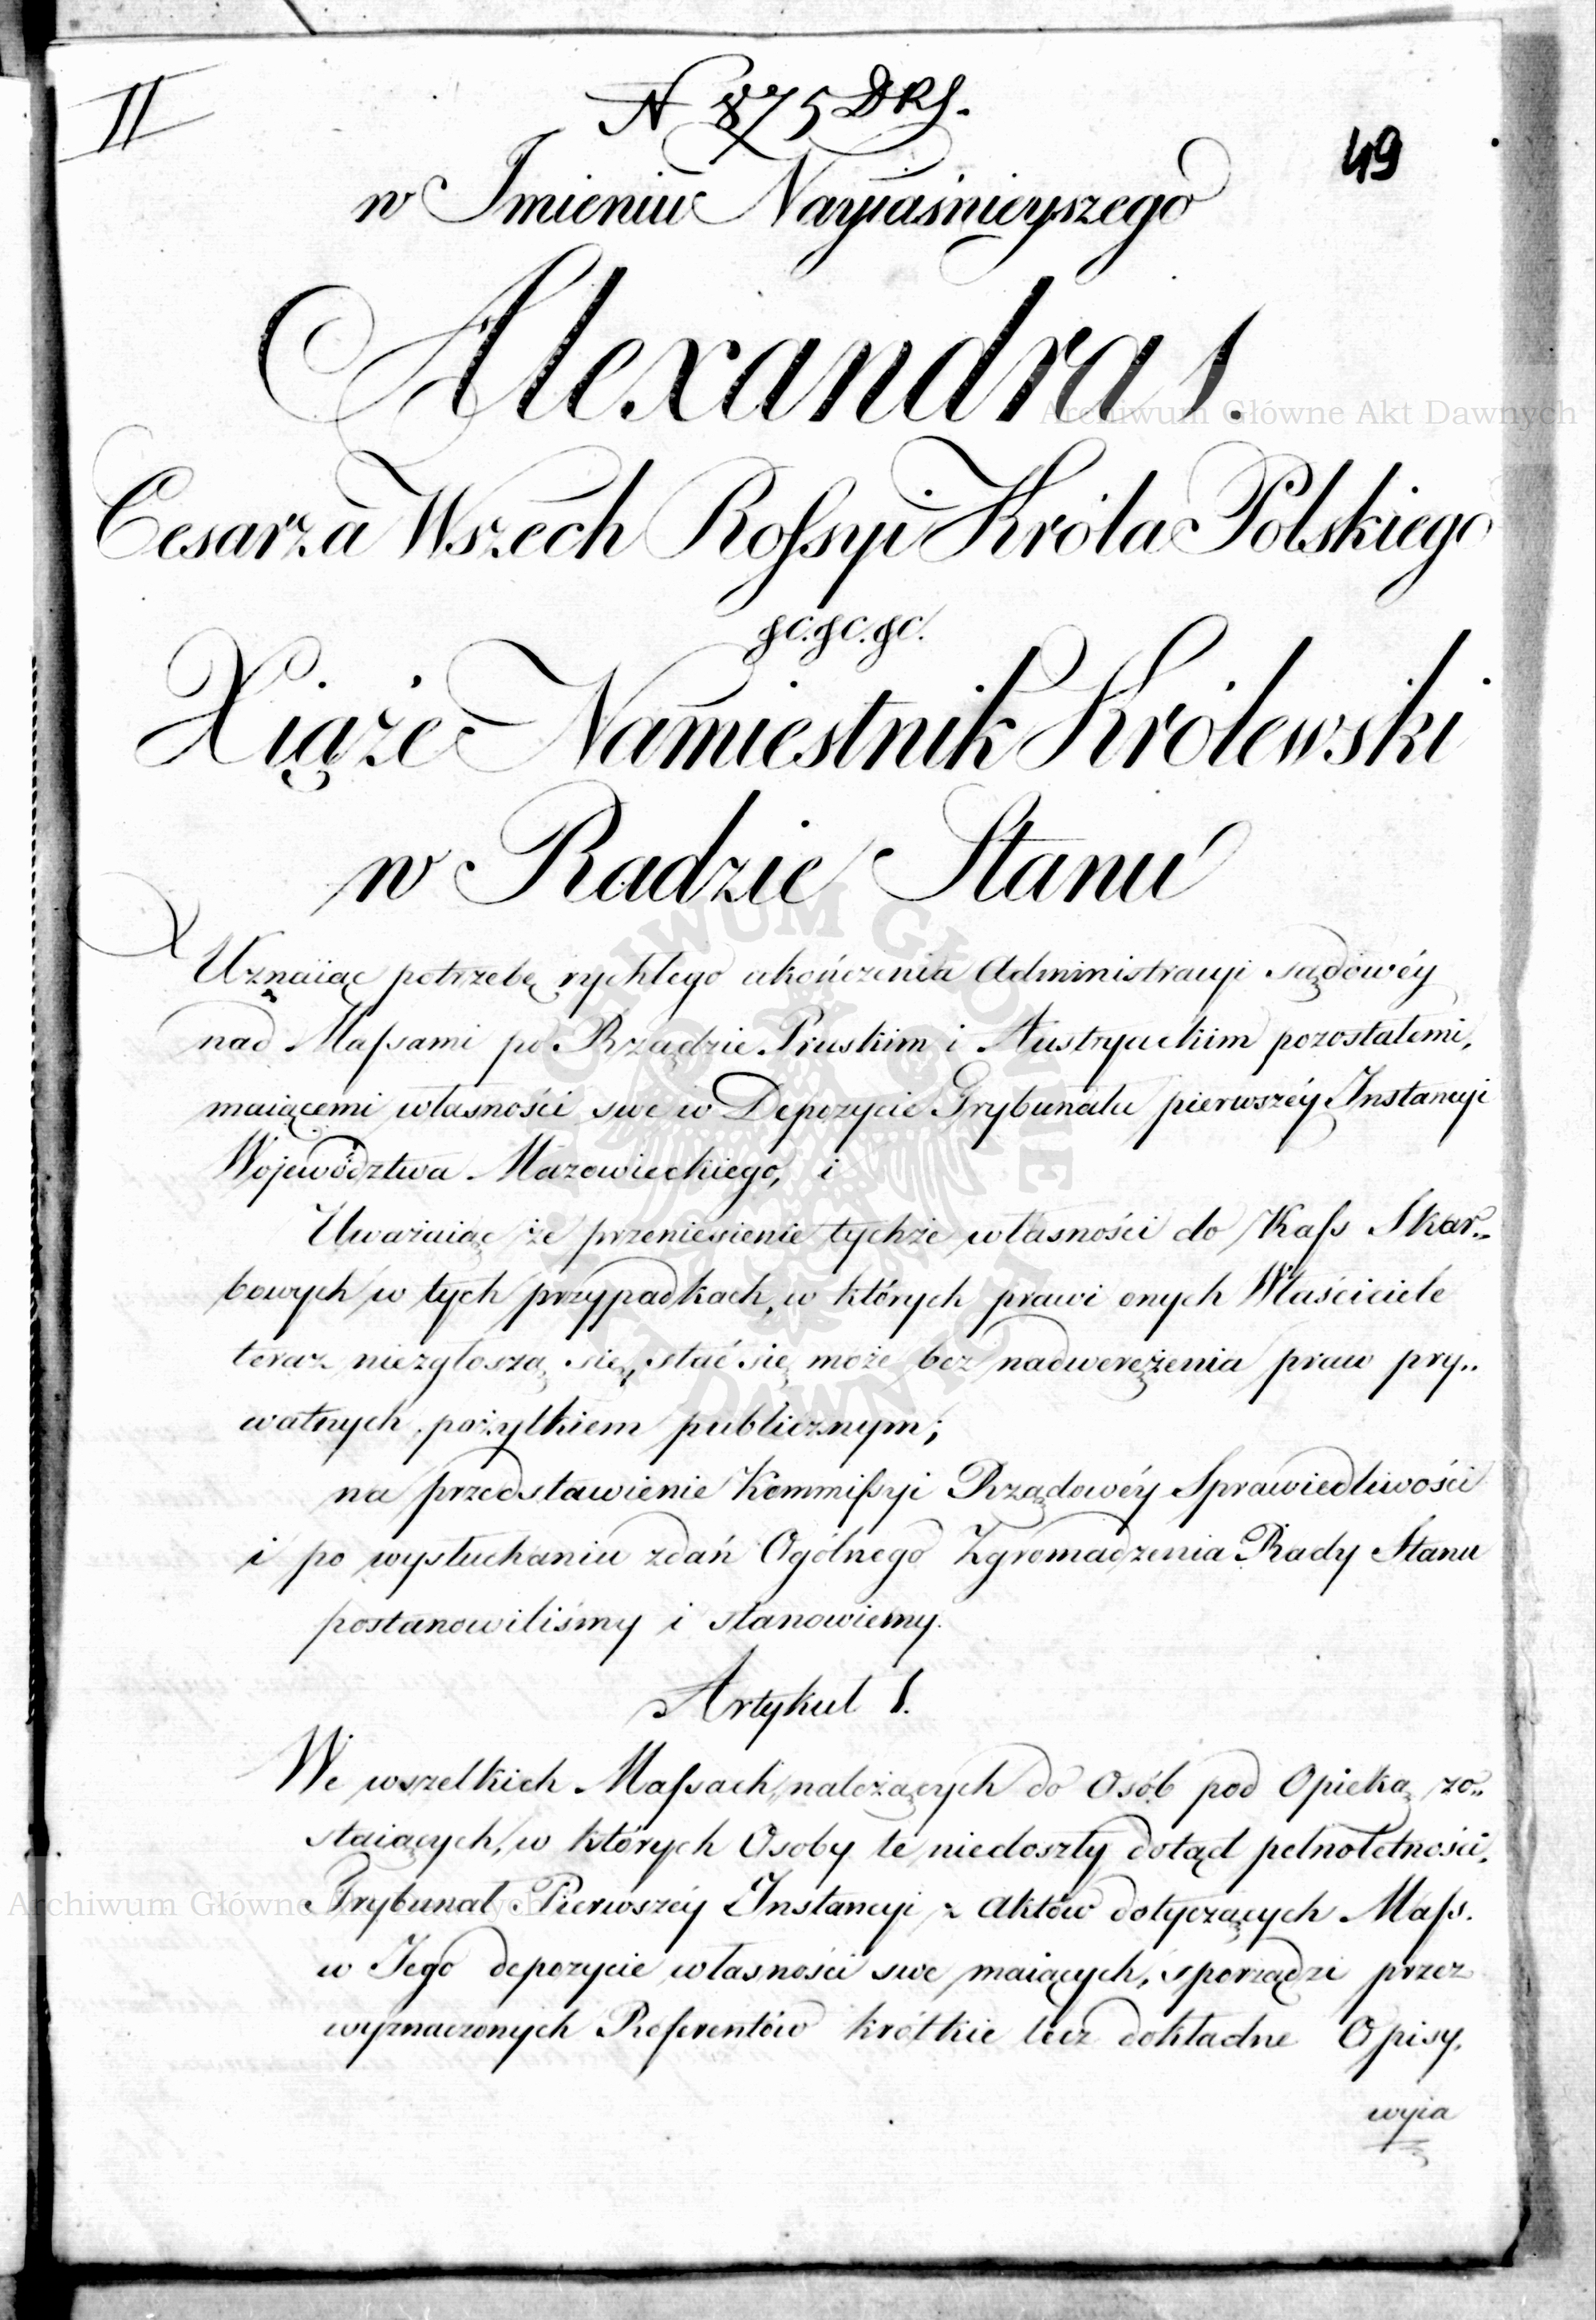 II
N 875 DRS.
49
w Imieniu Nayiaśnieyszego
Alexandra I.
Archiwum Główne Akt Dawnych
Cesarza Wszech Rossyi Króla Polskiego
&c. &c. &c.
Xiąże Namiestnik Królewski
w Radzie Stanu
Uznaiąc potrzebę rychłego ukończenia Administracyi sądowéy
nad Massami po Rządzie Pruskim i Austryackim pozostałemi,
maiącemi własności swe w Depozycie Trybunału pierwszéy Instancyi
Województwa Mazowieckiego, i
Uważaiąc że przeniesienie tychże własności do Kass Skar„
bowych w tych przypadkach, w których prawi onych Właściciele
teraz niezgłoszą się, stać się może bez nadwerężenia praw pry„
watnych, pożytkiem publicznym;
na przedstawienie Kommissyi Rządowéy Sprawiedliwości
i po wysłuchaniu zdań Ogólnego Zgromadzenia Rady Stanu
postanowiliśmy i stanowiemy.
Artykuł 1.
We wszelkich Massach, należących do Osób pod Opieką zo„
staiących, w których Osoby te niedoszły dotąd pełnoletności,
Trybunał Pierwszéy Instancyi z Aktów dotyczących Mass.
Archiwum Główne
w Jego depozycie własności swe maiących, sporządzi przez
wyznaczonych Referentów krótkie lecz dokładne Opisy,
wyia
ARCHIWUM GŁÓWNE AKT DAWNYCH